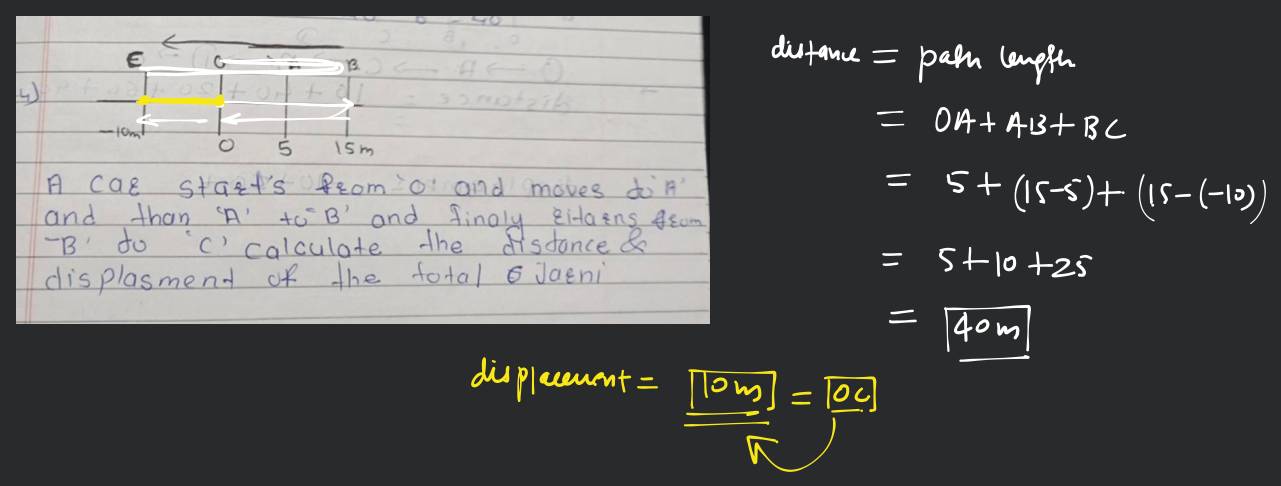 E O A B
4)
-10m 0 5 15m
A car start's from 'O' and moves to 'A'
and than 'A' to 'B' and finaly from
'B' to 'C' calculate the distance &
displasment of the total Jarni
distance = path length
= OA + AB + BC
= 5 + (15-5) + (15-(-10))
= 5 + 10 + 25
= 40m
displacement = 10m = OC